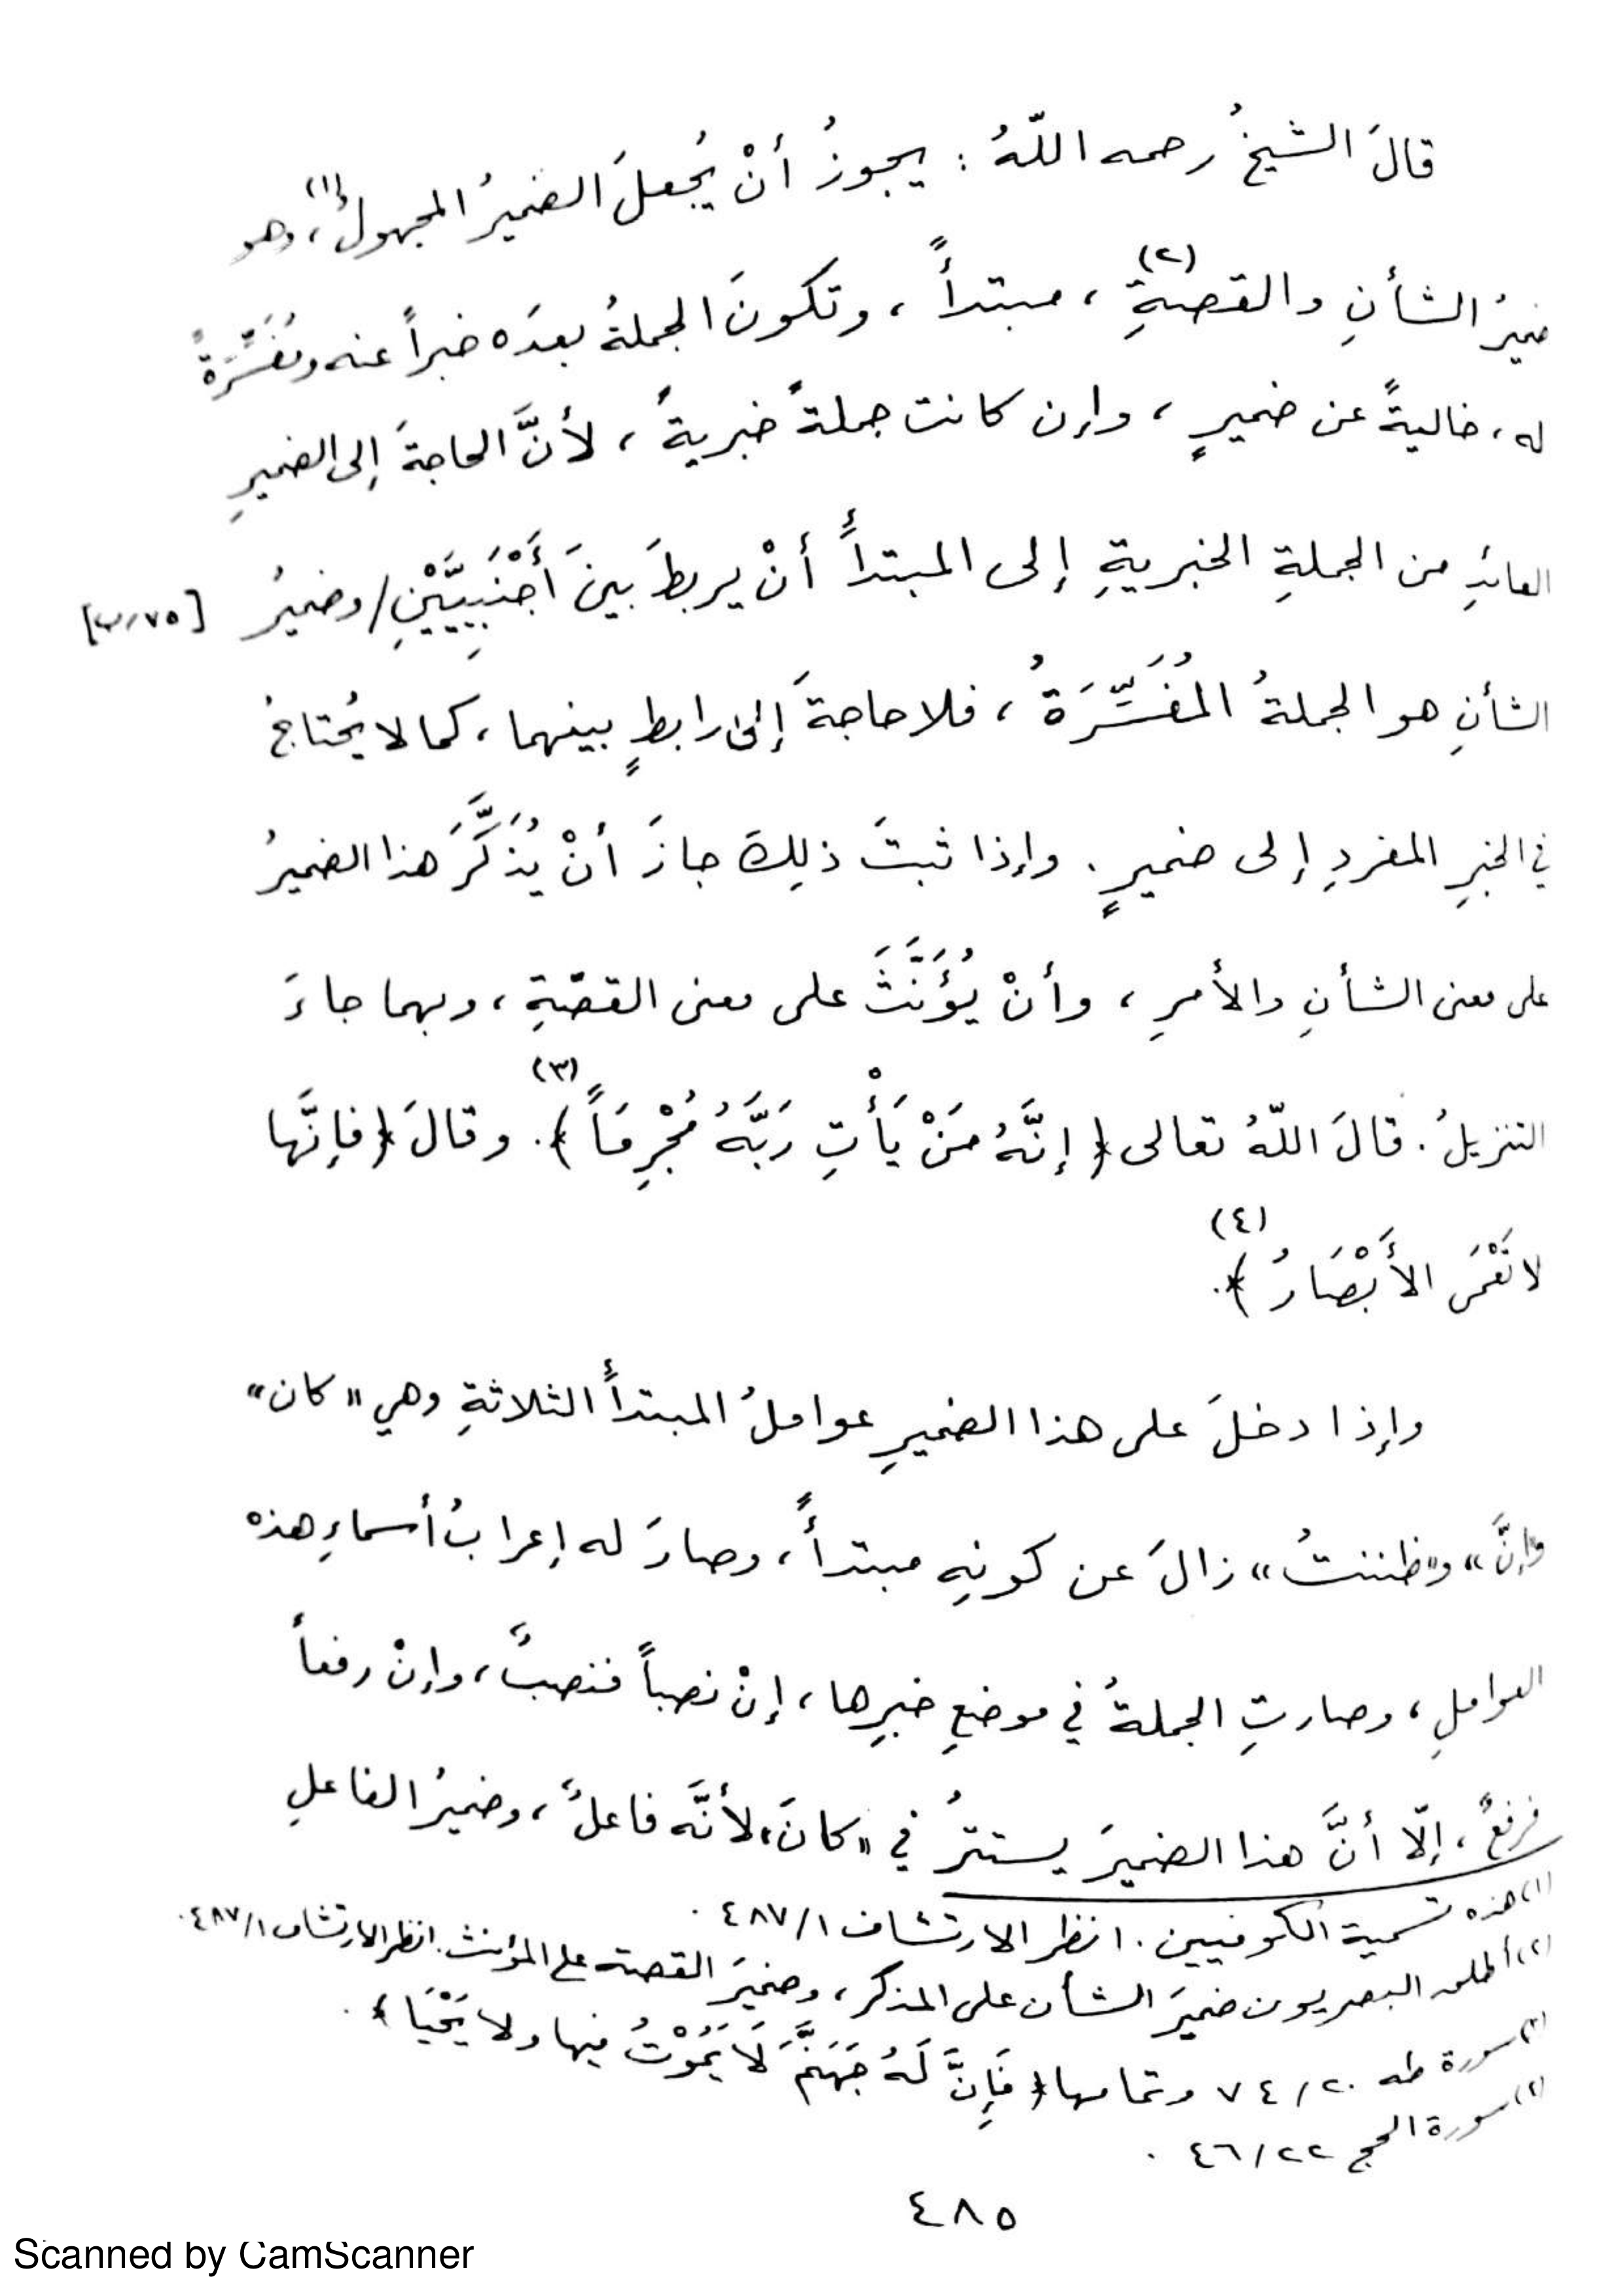 قالَ الشيخُ رحمه اللّهُ : يجوزُ أنْ يُجعلَ الضميرُ المجهولُ(١)، وهو
ضميرُ الشأنِ والقصةِ(٢)، مبتدأً ، وتكونَ الجملةُ بعدَه خبراً عنه ومُفَسِّرَةً
له، خاليةً عن ضميرٍ ، وإن كانت جملةً خبريةً ، لأنَّ الحاجةَ إلى الضميرِ
العائدِ من الجملةِ الخبريةِ إلى المبتدأِ أنْ يربطَ بينَ أَجْنَبِيَّيْنِ/ وضميرُ [٧٥/ب]
الشأنِ هو الجملةُ المُفَسِّرَةُ ، فلا حاجةَ إلى رابطٍ بينهما، كما لا يُحتاجُ
في الخبرِ المفردِ إلى ضميرٍ . وإذا ثبتَ ذلِكَ جازَ أنْ يُذَكَّرَ هذا الضميرُ
على معنى الشأنِ والأمرِ ، وأنْ يُؤَنَّثَ على معنى القصّةِ ، وبهما جاءَ
التنزيلُ . قالَ اللّهُ تعالى ﴿ إنَّهُ مَنْ يَأْتِ رَبَّهُ مُجْرِمَاً ﴾(٣). وقالَ ﴿ فإنَّها
لا تَعْمَى الأَبْصَارُ ﴾(٤).
وإذا دخلَ على هذا الضميرِ عواملُ المبتدأِ الثلاثةِ وهي «كان»
و«إنَّ» و«ظننتُ» زالَ عن كونِهِ مبتدأً ، وصارَ له إعرابُ أسماءِ هذه
العواملِ ، وصارتِ الجملةُ في موضعِ خبرِها ، إنْ نصباً فنصبٌ ، وإنْ رفعاً
فرفعٌ ، إلّا أنَّ هذا الضميرَ يستترُ في «كانَ» لأنَّه فاعلٌ ، وضميرُ الفاعلِ
(١) هذه تسمية الكوفيين . انظر الارتشاف ٤٨٧/١ .
(٢) أطلق البصريون ضميرَ الشأن على المذكر ، وضميرَ القصة على المؤنث . انظر الارتشاف ٤٨٧/١ .
(٣) سورة طه ٧٤/٢٠ وتمامها ﴿ فَإِنَّ لَهُ جَهَنَّمَ لَا يَمُوْتُ فيها ولا يَحْيَا ﴾ .
(٤) سورة الحج ٤٦/٢٢ .
٤٨٥
Scanned by CamScanner